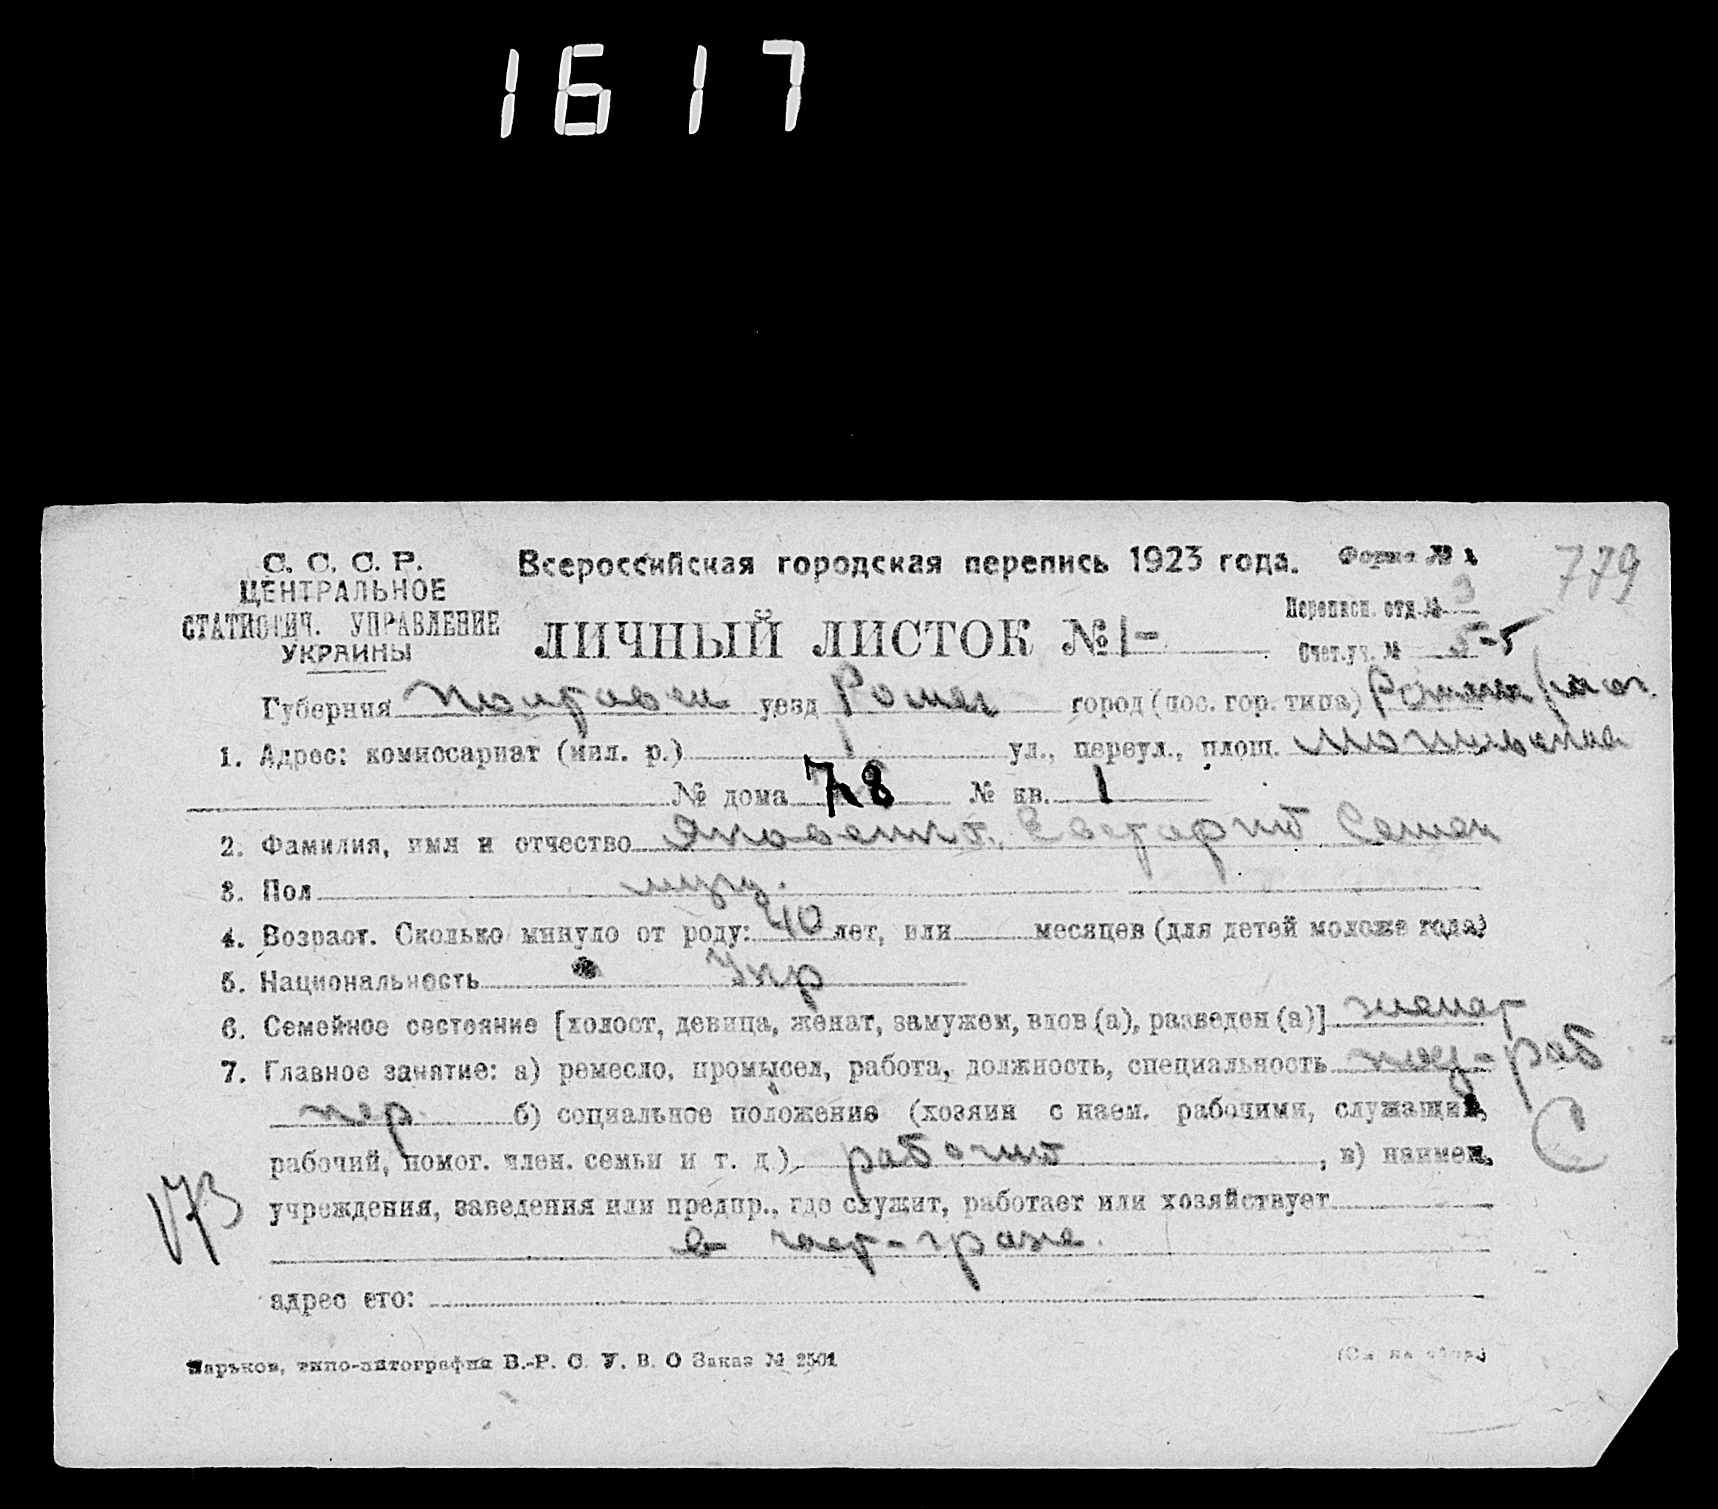 1617
С. С. С. Р. Всероссийская городская перепись 1923 года. Форма № 1 779
ЦЕНТРАЛЬНОЕ Переписн. отд. № 3
СТАТИСТИЧ. УПРАВЛЕНИЕ ЛИЧНЫЙ ЛИСТОК № 1-
УКРАИНЫ Счет. уч. № 5-5
Губерния Полтавск уезд Ромен город (пос. гор. типа) Ромен
1. Адрес: комиссариат (мил. р.) 1 ул., переул., площ.
№ дома 78 № кв. 1
2. Фамилия, имя и отчество Семен
3. Пол муж.
4. Возраст. Сколько минуло от роду: 40 лет, или месяцев (для детей моложе года)
5. Национальность Укр
6. Семейное состояние [холост, девица, женат, замужем, вдов (а), разведен (а)] женат
7. Главное занятие: а) ремесло, промысел, работа, должность, специальность
б) социальное положение (хозяин с наем. рабочими, служащий,
рабочий, помог. член. семьи и т. д.) рабочий, в) наимен.
173 учреждения, заведения или предпр., где служит, работает или хозяйствует
в
адрес его:
Харьков, типо-литография В.-Р. С. У. В. О Заказ № 2501 (См на обор.)